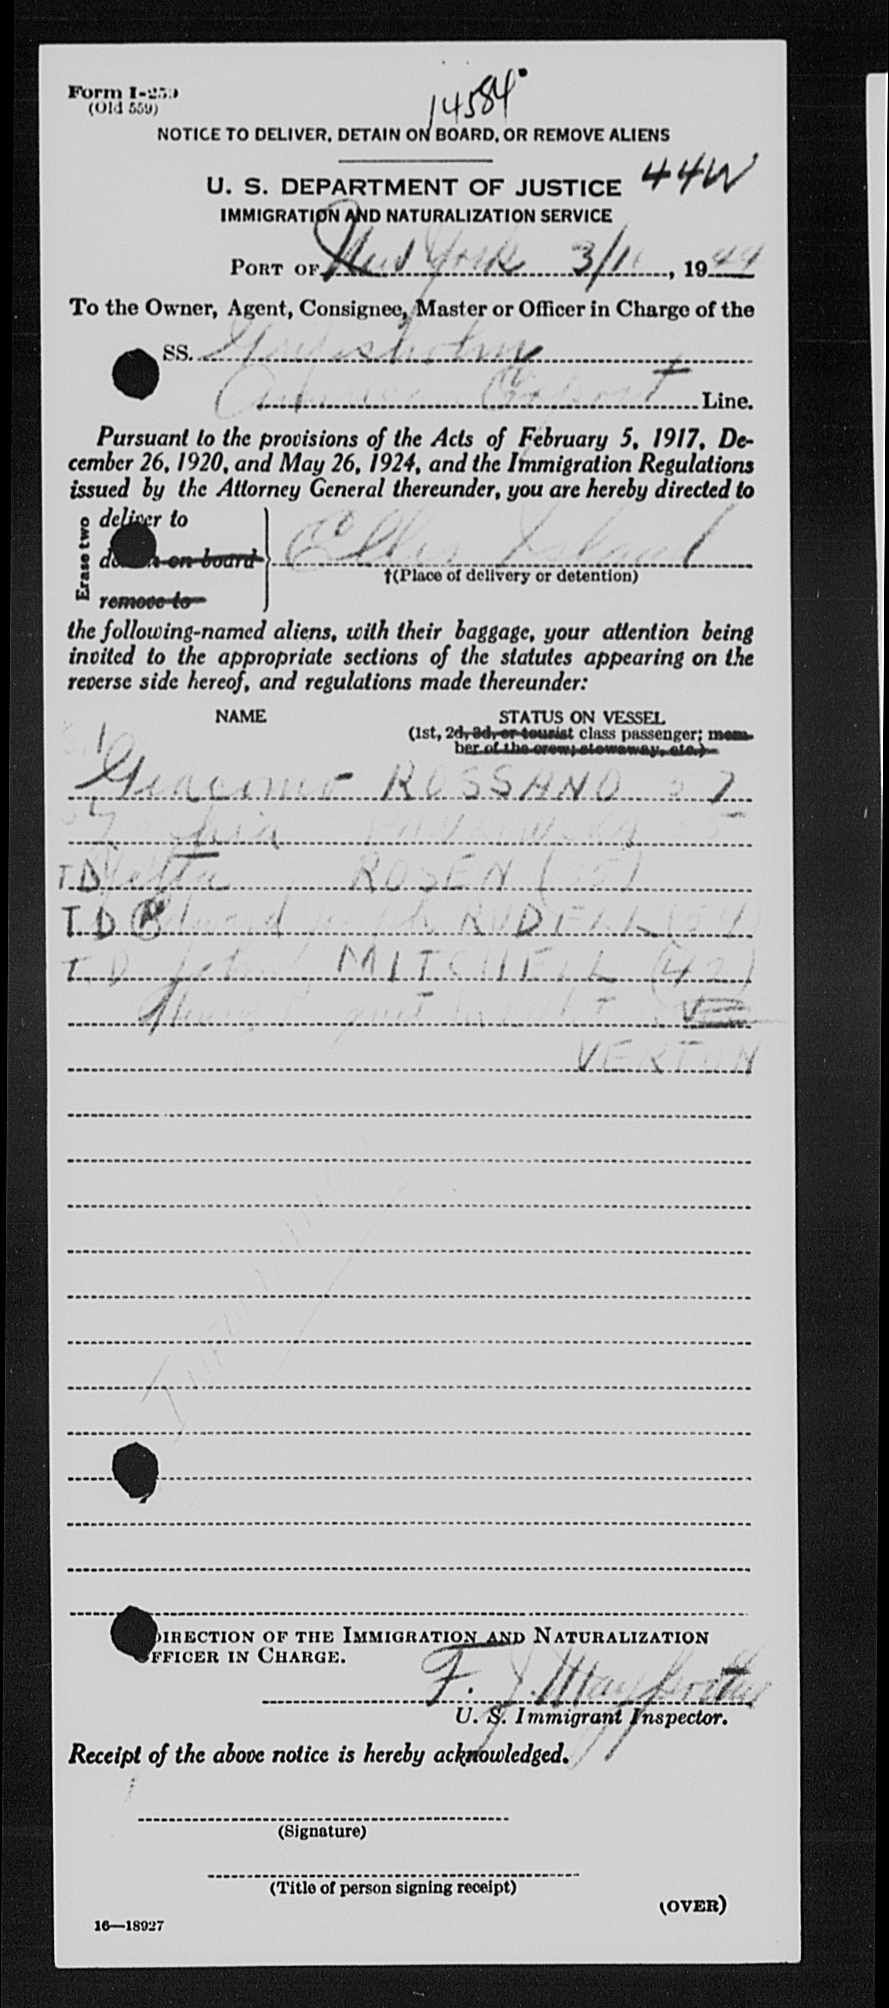 Form I-259
(Old 559)
14584
NOTICE TO DELIVER, DETAIN ON BOARD, OR REMOVE ALIENS
44W
U. S. DEPARTMENT OF JUSTICE
IMMIGRATION AND NATURALIZATION SERVICE
PORT OF New York 3/11, 1944
To the Owner, Agent, Consignee, Master or Officer in Charge of the
SS. Gripsholm
American Export Line.
Pursuant to the provisions of the Acts of February 5, 1917, De-
cember 26, 1920, and May 26, 1924, and the Immigration Regulations
issued by the Attorney General thereunder, you are hereby directed to
Erase two
deliver to
on board
remove to
Ellis Island
†(Place of delivery or detention)
the following-named aliens, with their baggage, your attention being
invited to the appropriate sections of the statutes appearing on the
reverse side hereof, and regulations made thereunder:
NAME
STATUS ON VESSEL
(1st, 2d, 3d, or tourist class passenger; mem-
ber of the crew; stowaway, etc.)
Giacomo ROSSANO 27
T.D ROSEN
T D Edward RUDELL
T. D John MITCHELL (42)
VERTUN
DIRECTION OF THE IMMIGRATION AND NATURALIZATION
OFFICER IN CHARGE.
F. J.
U. S. Immigrant Inspector.
Receipt of the above notice is hereby acknowledged.
(Signature)
(Title of person signing receipt)
(OVER)
16—18927